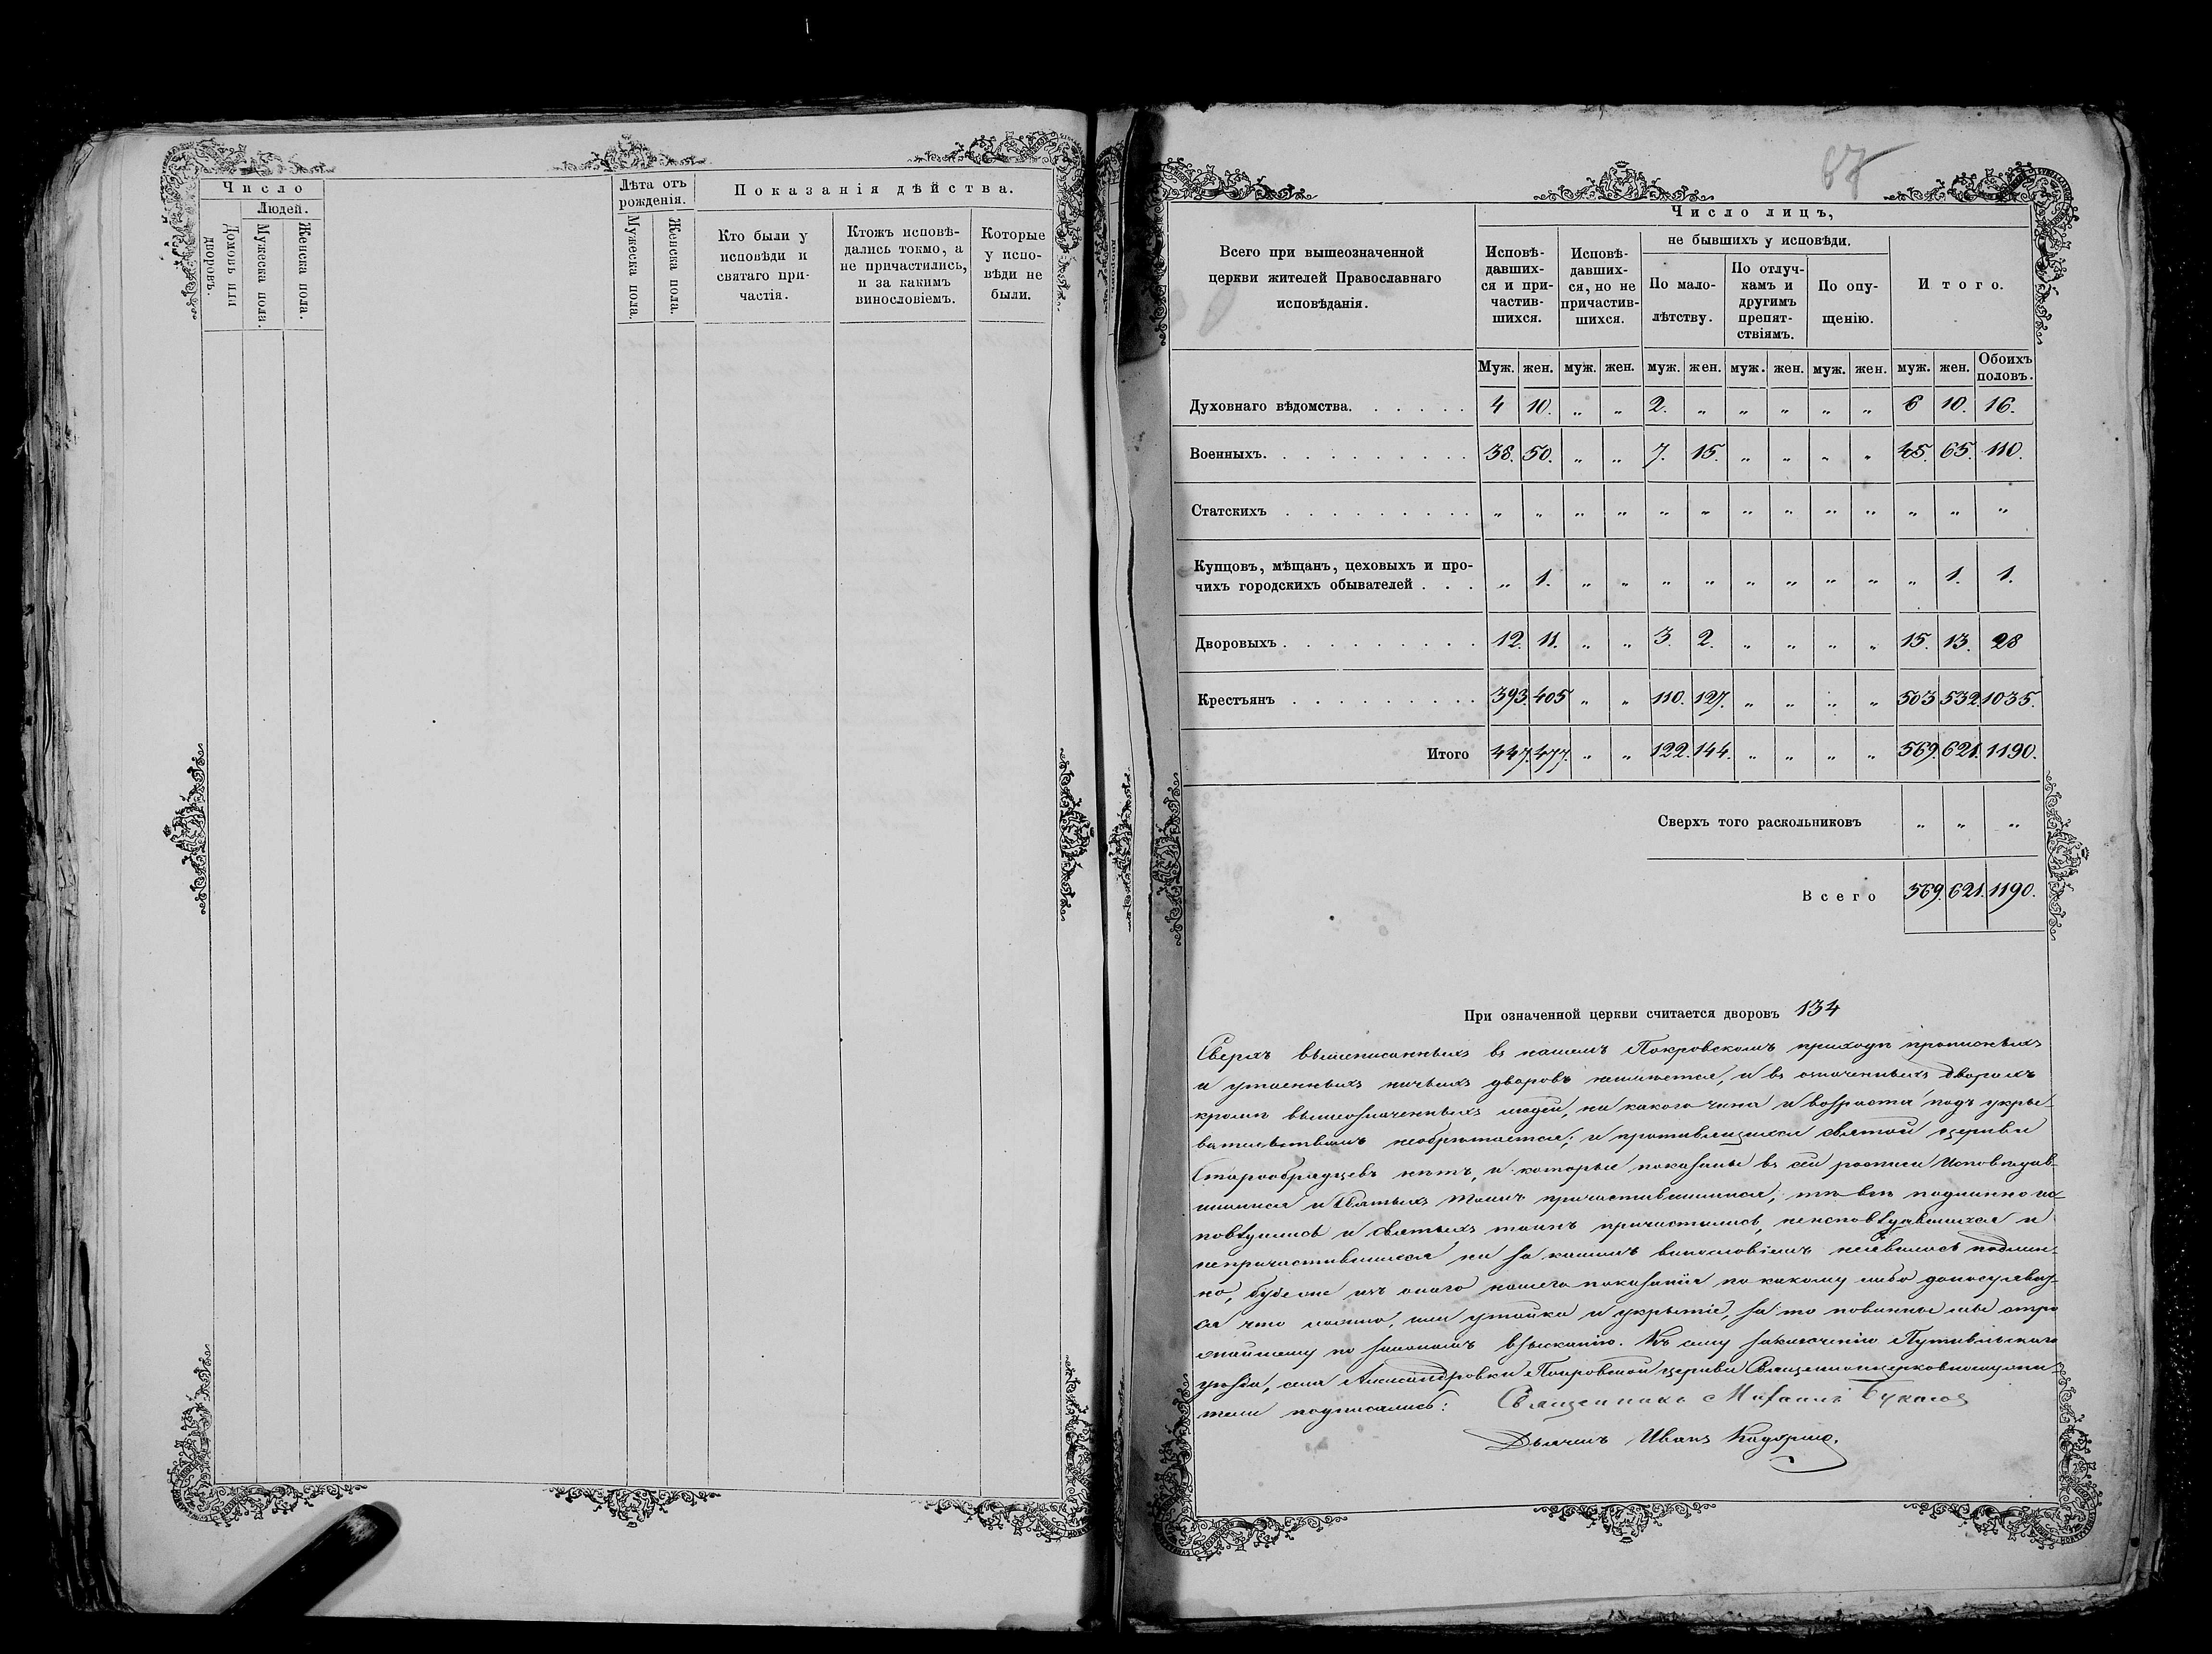 Число
Людей.
Домовъ или дворовъ.
Мужеска пола.
Женска пола.
Лѣта отъ рожденія.
Мужеска пола.
Женска пола.
Показанія дѣйства.
Кто были у исповѣди и святаго при-
частія.
Ктожъ исповѣ-
дались токмо, а
не причастились,
и за какимъ
винословіемъ.
Которые
у испо-
вѣди не
были.
Всего при вышеозначенной
церкви жителей Православнаго
исповѣданія.
Число лицъ,
Исповѣ-
давших-
ся и при-
частив-
шихся.
Исповѣ-
давших-
ся, но не
причастив-
шихся.
не бывшихъ у исповѣди.
По мало-
лѣтству.
По отлуч-
камъ и
другимъ
препят-
ствіямъ.
По опу-
щенію.
Итого.
Муж. жен. муж. жен. муж. жен. муж. жен. муж. жен. муж. жен. Обоихъ половъ.
Духовнаго вѣдомства. . . . . . 4 10. „ „ 2. „ „ „ „ „ 6 10. 16.
Военныхъ. . . . . . . . . . 38. 50. „ „ 7. 15. „ „ „ „ 45. 65. 110.
Статскихъ . . . . . . . . . „ „ „ „ „ „ „ „ „ „ „ „ „
Купцовъ, мѣщанъ, цеховыхъ и про-
чихъ городскихъ обывателей . . . „ 1. „ „ „ „ „ „ „ „ „ 1. 1.
Дворовыхъ . . . . . . . . . 12. 11. „ „ 3. 2. „ „ „ „ 15. 13. 28
Крестьянъ . . . . . . . . . 393. 405 „ „ 110. 127. „ „ „ „ 503 532. 1035.
Итого 447. 477. „ „ 122. 144. „ „ „ „ 569. 621. 1190.
Сверхъ того раскольниковъ „ „ „
Всего 569. 621. 1190.
При означенной церкви считается дворовъ 134
Сверхъ вышеписанныхъ въ нашемъ Покровскомъ приходѣ прописныхъ
и утаенныхъ ничьихъ дворовъ неимѣется, и въ означенныхъ дворахъ
кромѣ вышеозначенныхъ людей, ни какого чина и возраста подъ укры-
вательствомъ необрѣтается; и противящихся святой церкви
Старообрядцевъ нѣтъ, и которые показаны въ сей росписи Исповѣдав-
шимися и Святыхъ Таинъ причастившимися, тѣ всѣ подлинно ис-
повѣдились и святыхъ таинъ причастились, неисповѣдавшихся и
непричастившихся ни за какимъ винословіемъ неявилось подлин-
но, буде же изъ онаго нашего показанія по какому либо доносу явит-
ся что ложно, или утайка и укрытіе, за то повинны мы стро
жайшему по законамъ взысканію. Къ сему заключенію Путивльскаго
уѣзда, села Александровки Покровской церкви Священноцерковнослужи-
тели подписались: Священникъ Михаилъ
Дьячекъ Иванъ